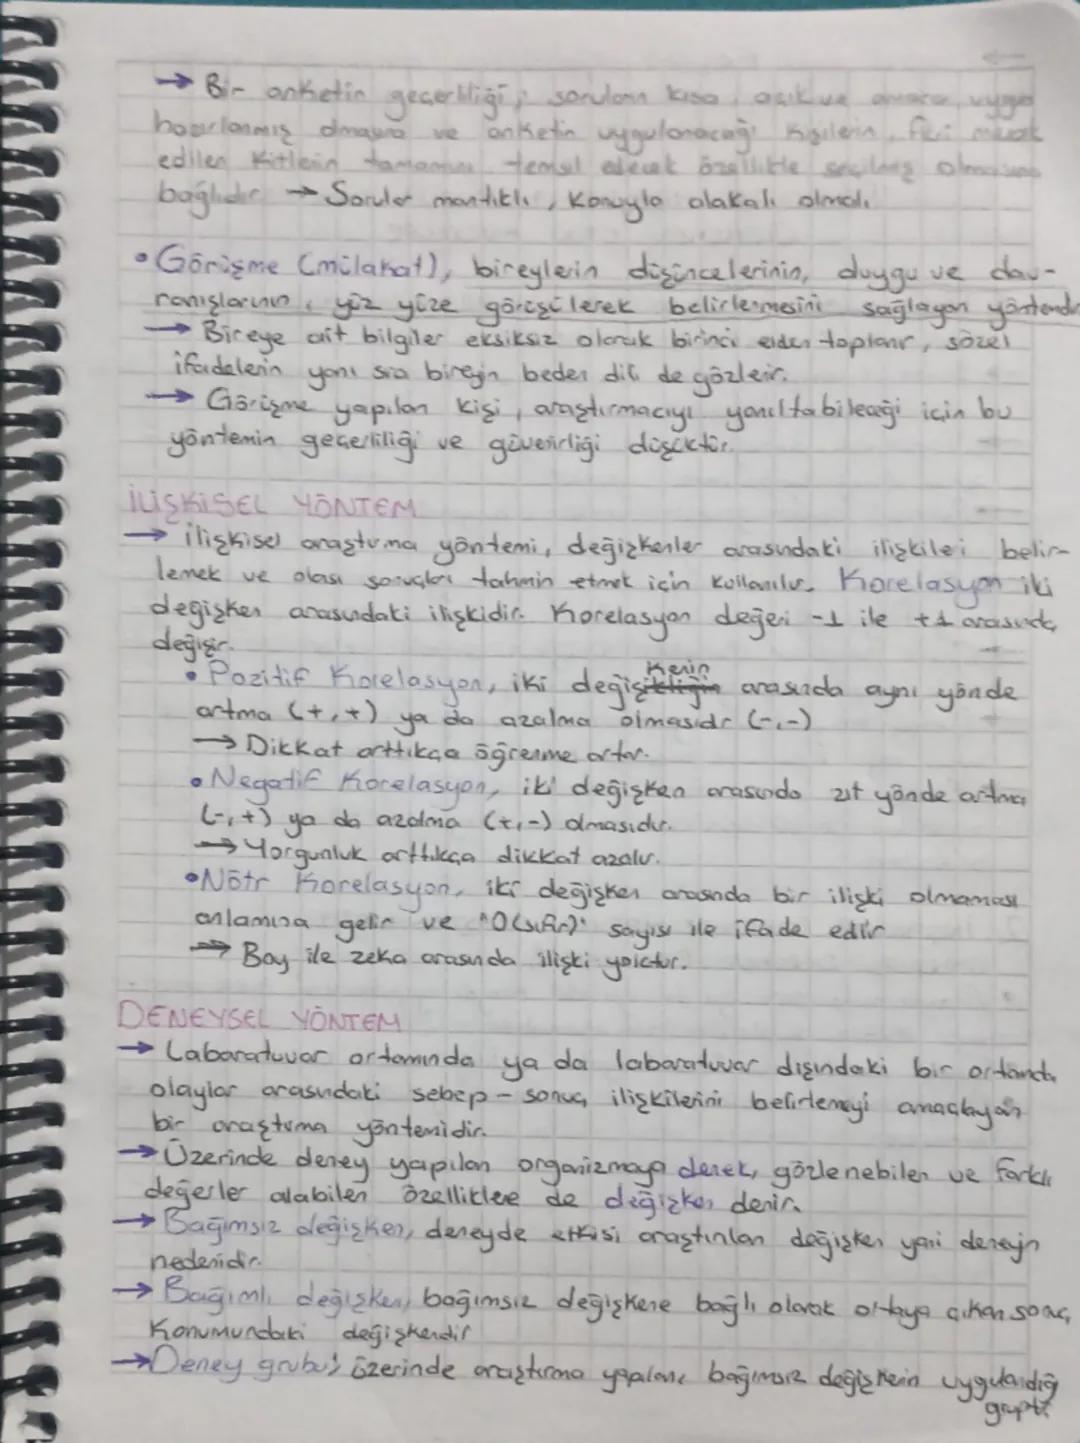 → Bir anketin geçerliliği; soruların kısa, açık ve amaca uygun
hazırlanmış olmasına ve anketin uygulanacağı kişilerin, fikri merak
edilen kitlenin tamamını temsil edecek özellikte seçilmiş olmasına
bağlıdır → Sorular mantıklı, konuyla alakalı olmalı.
• Görüşme (mülakat), bireylerin düşüncelerinin, duygu ve dav-
ranışlarının, yüz yüze görüşülerek belirlenmesini sağlayan yöntemdir
→ Bireye ait bilgiler eksiksiz olarak birinci elden toplanır, sözel
ifadelerin yanı sıra bireyin beden dili de gözlenir.
→ Görüşme yapılan kişi, araştırmacıyı yanıltabileceği için bu
yöntemin geçerliliği ve güvenirliği düşüktür.
İLİŞKİSEL YÖNTEM
→ İlişkisel araştırma yöntemi, değişkenler arasındaki ilişkileri belir-
lemek ve olası sonuçları tahmin etmek için kullanılır. Korelasyon iki
değişken arasındaki ilişkidir. Korelasyon değeri -1 ile +1 arasında
değişir.
• Pozitif Korelasyon, iki değişkenin arasında aynı yönde
artma (+,+) ya da azalma olmasıdır (-,-)
→ Dikkat arttıkça öğrenme artar.
• Negatif Korelasyon, iki değişken arasında zıt yönde artma
(-,+) ya da azalma (+,-) olmasıdır.
→ Yorgunluk arttıkça dikkat azalır.
• Nötr Korelasyon, iki değişken arasında bir ilişki olmaması
anlamına gelir ve "0(sıfır)" sayısı ile ifade edilir
→ Boy ile zeka arasında ilişki yoktur.
DENEYSEL YÖNTEM
→ Labaratuvar ortamında ya da labaratuvar dışındaki bir ortamda
olaylar arasındaki sebep - sonuç ilişkilerini belirlemeyi amaçlayan
bir araştırma yöntemidir.
→ Üzerinde deney yapılan organizmaya denek, gözlenebilen ve farklı
değerler alabilen özelliklere de değişken denir.
→ Bağımsız değişken, deneyde etkisi araştırılan değişken yani deneyin
nedenidir.
→ Bağımlı değişken, bağımsız değişkene bağlı olarak ortaya çıkan sonuç
konumundaki değişkendir
→ Deney grubu; üzerinde araştırma yapılan, bağımsız değişkenin uygulandığı
gruptur